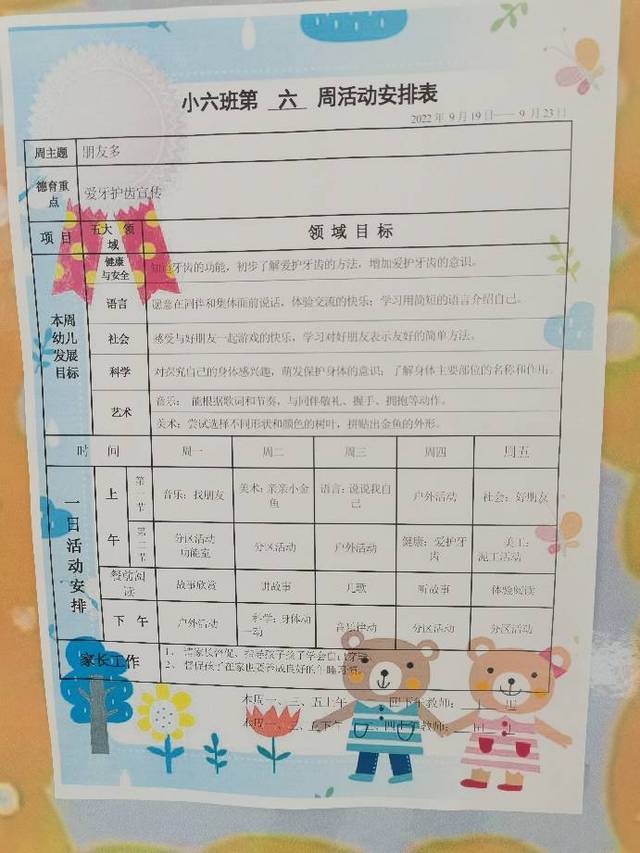 小六班第 六 周活动安排表
2022年9月19日——9月23日
周主题 朋友多
德育重点 爱牙护齿宣传
项目 五大领域 领域目标
本周幼儿发展目标
健康与安全 知道牙齿的功能，初步了解爱护牙齿的方法，增加爱护牙齿的意识。
语言 愿意在同伴和集体面前说话，体验交流的快乐；学习用简短的语言介绍自己。
社会 感受与好朋友一起游戏的快乐，学习对好朋友表示友好的简单方法。
科学 对探究自己的身体感兴趣，萌发保护身体的意识；了解身体主要部位的名称和作用。
艺术 音乐：能根据歌词和节奏，与同伴敬礼、握手、拥抱等动作。
美术：尝试选择不同形状和颜色的树叶，拼贴出金鱼的外形。
时间 周一 周二 周三 周四 周五
一日活动安排
上午 第一节 音乐：找朋友 美术：亲亲小金鱼 语言：说说我自己 户外活动 社会：好朋友
第二节 分区活动功能室 分区活动 户外活动 健康：爱护牙齿 美工：泥工活动
餐前阅读 故事欣赏 讲故事 儿歌 听故事 体验阅读
下午 户外活动 科学：身体动一动 音乐律动 分区活动 分区活动
家长工作 1、请家长督促、指导孩子学会自己
2、督促孩子在家也要养成良好的午睡习惯。
本周一、三、五上午 四下午教师：
本周一、三、五下午 四上午教师：